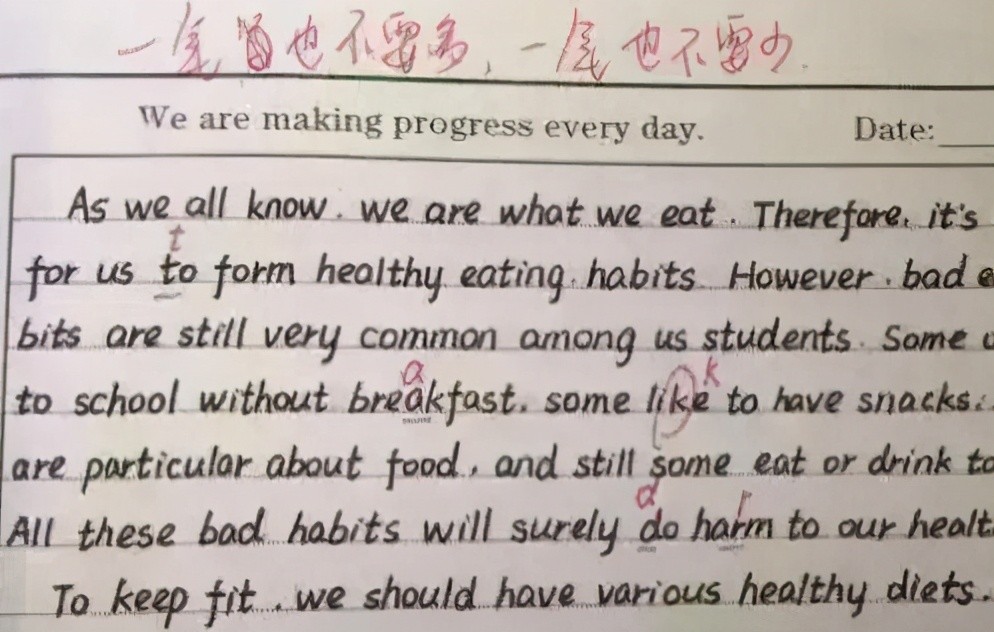 一尾也不要多,一尾也不要少.
We are making progress every day. Date:
As we all know. we are what we eat. Therefore, it's
t
for us to form healthy eating habits However. bad
bits are still very common among us students. Some
a k
to school without breakfast. some like to have snacks.
are particular about food, and still some eat or drink to
d r
All these bad habits will surely do harm to our healt
To keep fit, we should have various healthy diets.